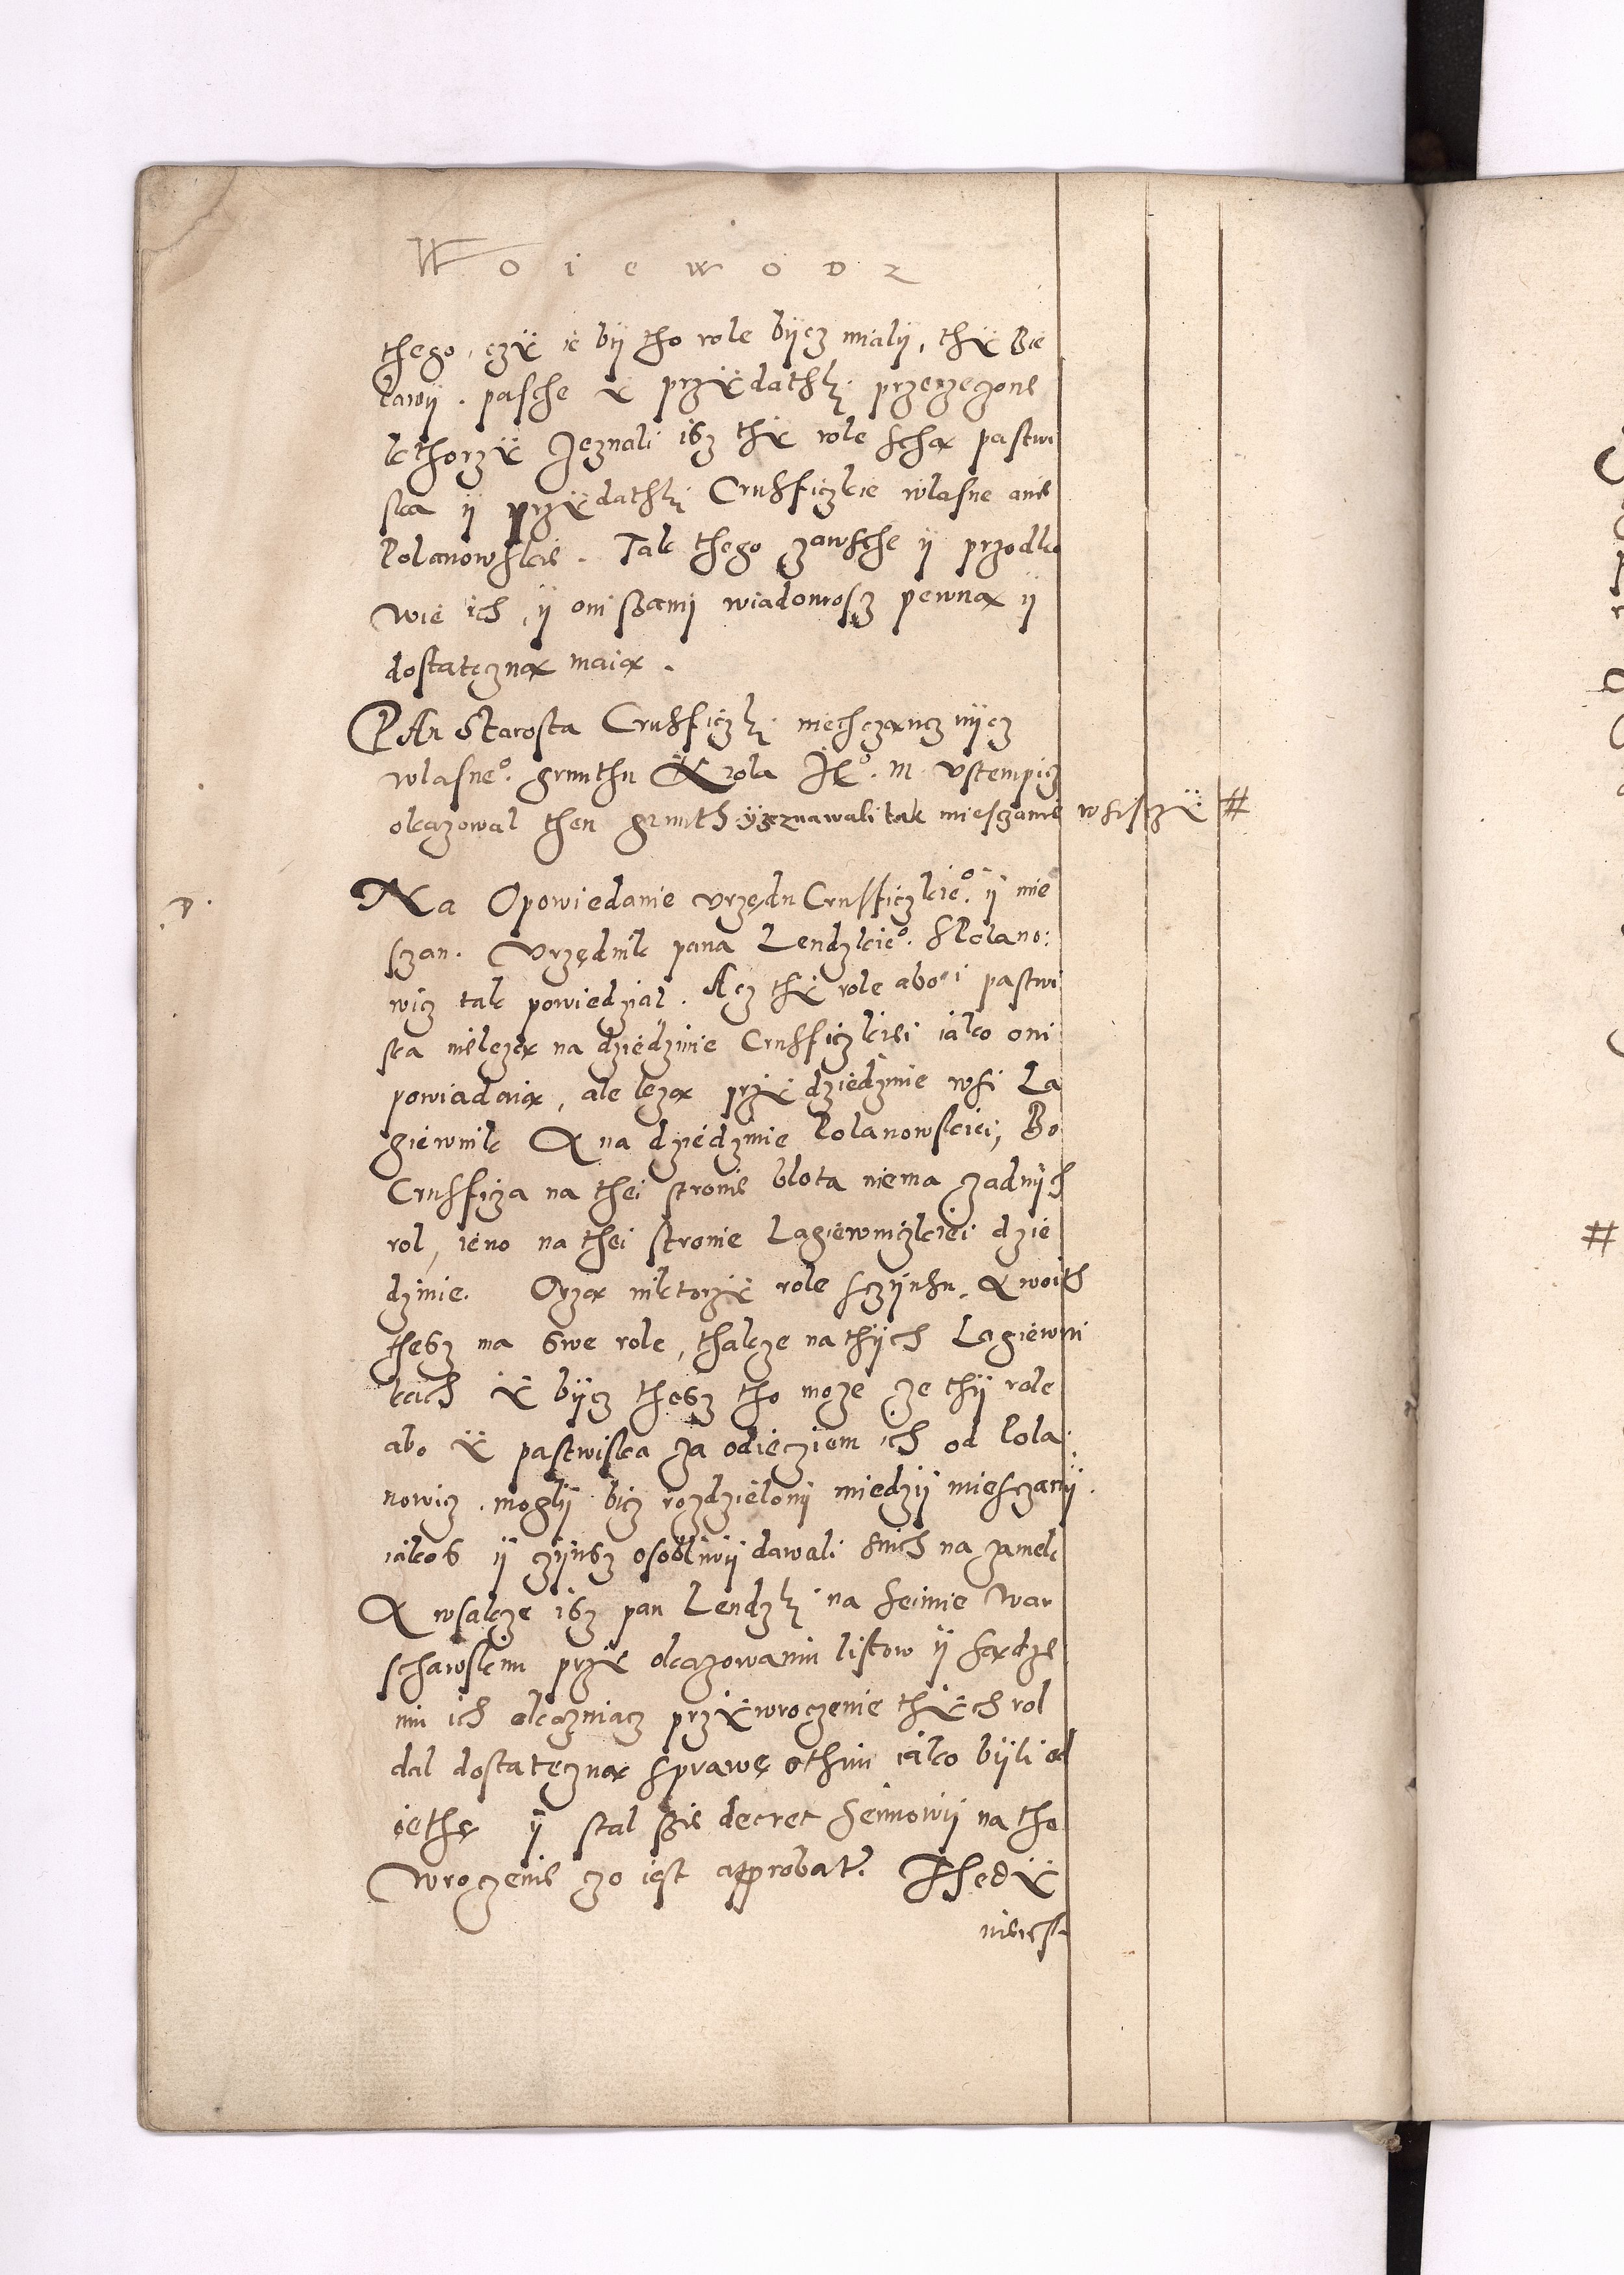 Woiewodz
thego, czÿ ie bÿ tho role bÿcz mialÿ, thÿ Bie
lawÿ. pasche ÿ przÿdathkj przerzeczone
kthorzÿ Zeznali isz thÿ role scha pastwi
ska ÿ przÿdathkj Crusficzkie wlasne anie
Kolanowskie. Tak thego zawsche ÿ przodko
wie ich, ÿ oni szami wiadomosz pewna ÿ
dostateczna maia.
PAn Starosta Crusficzkj niechczancz nÿcz
wlasneo. grunthu Krola Jeo. M. vstempicz
okazowal then grunth ÿ zeznawali tak miesczanie wsistzÿ #
D.
NA Opowiedanie vrzędu Crusficzkieo. ÿ mie
szan. Vrzędnik pana Lendzkieo. s Kolano:
wicz tak powiedzial. Acz thÿ role abo i pastwi
ska nieleza na dziedzinie Crusficzkiei iako oni
powiadaia, ale leza przÿ dziedzinie wsi La
giewnik A na dziedzinie Kolanowskiei, Bo
Crusficza na thei stronie blota niema zadnÿch
rol, ieno na thei stronie Lagiewniczkiei dzie
dzinie. Orza niktorzÿ role sczÿnsu, A woith
thesz ma swe role, thakze na thÿch Lagiewni
kach ÿ bÿcz thesz tho moze ze thÿ role
abo ÿ pastwiska za odięcziem ich od Kola:
nowicz. moglÿ bicz rozdzielonj miedzÿ miesczanÿ.
iakos ÿ czÿnsz osobliwÿ dawali snich na zamek
A wsakze isz pan Lendzkj na seimie War
schawskim przÿ okazowaniu listow ÿ sardze
niu ich okazuiacz przÿwroczenie thÿch rol
dal dostateczna sprawę othim iako bÿli od
ięthe ÿ stal szie decret seimowÿ na tho
wroczenie czo iest approbat. Thedÿ
niiest